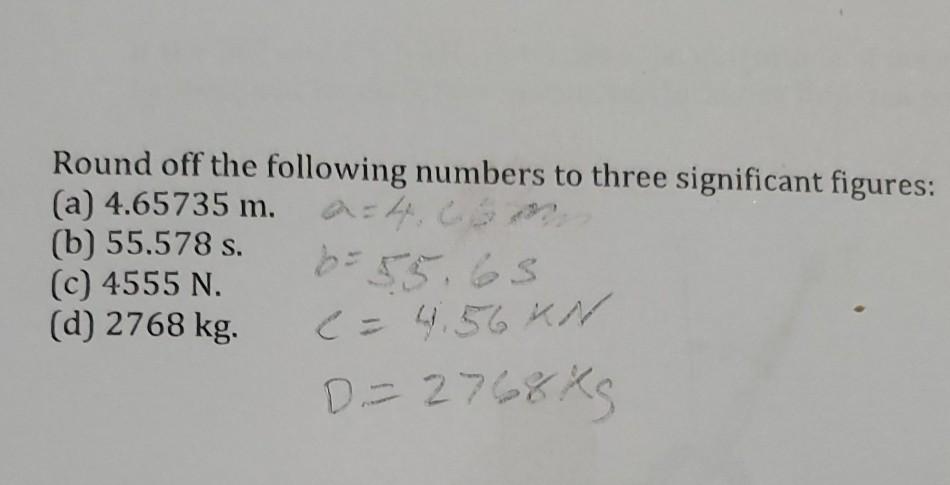 Round off the following numbers to three significant figures:
(a) 4.65735 m.
a=4.66 m
(b) 55.578 s.
b=55.6 s
(c) 4555 N.
c = 4.56 KN
(d) 2768 kg.
D = 2768 Kg